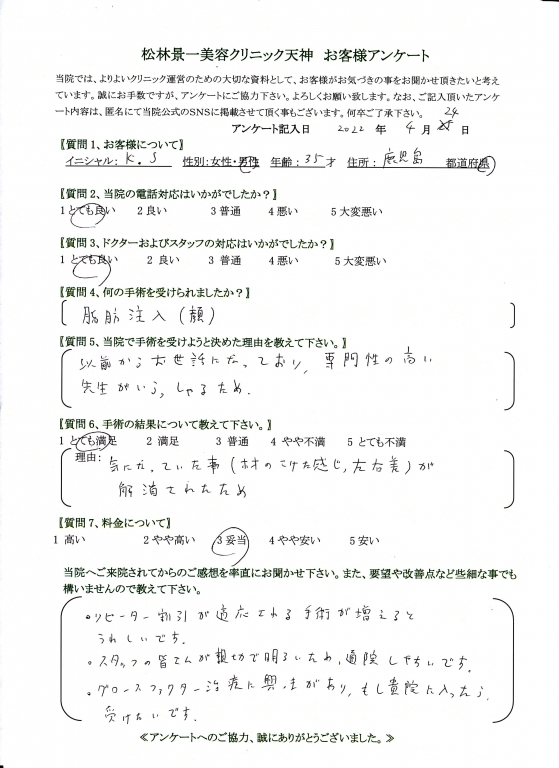 松林景一美容クリニック天神　お客様アンケート
当院では、よりよいクリニック運営のための大切な資料として、お客様がお気づきの事をお聞かせ頂きたいと考え
ています。誠にお手数ですが、アンケートにご協力下さい。よろしくお願い致します。なお、ご記入頂いたアンケ
ート内容は、匿名にて当院公式のSNSに掲載させて頂く事もございます。何卒ご了承下さい。
24
アンケート記入日　2022 年 4 月 日
【質問1、お客様について】
イニシャル： K.S　性別：女性・男性　年齢：35才　住所：鹿児島　都道府県
【質問2、当院の電話対応はいかがでしたか？】
1 とても良い　2 良い　3 普通　4 悪い　5 大変悪い
【質問3、ドクターおよびスタッフの対応はいかがでしたか？】
1 とても良い　2 良い　3 普通　4 悪い　5 大変悪い
【質問4、何の手術を受けられましたか？】
脂肪注入（顔）
【質問5、当院で手術を受けようと決めた理由を教えて下さい。】
以前からお世話になっており、専門性の高い
先生がいらっしゃるため。
【質問6、手術の結果について教えて下さい。】
1 とても満足　2 満足　3 普通　4 やや不満　5 とても不満
理由：気になっていた事（ホホのこけた感じ、左右差）が
解消されたため
【質問7、料金について】
1 高い　2 やや高い　3 妥当　4 やや安い　5 安い
当院へご来院されてからのご感想を率直にお聞かせ下さい。また、要望や改善点など些細な事でも
構いませんので教えて下さい。
・リピーター割引が適応される手術が増えると
うれしいです。
・スタッフの皆さんが親切で明るいため、通院しやすいです。
・グロースファクター治療に興味があり、もし貴院に入ったら、
受けたいです。
≪アンケートへのご協力、誠にありがとうございました。≫